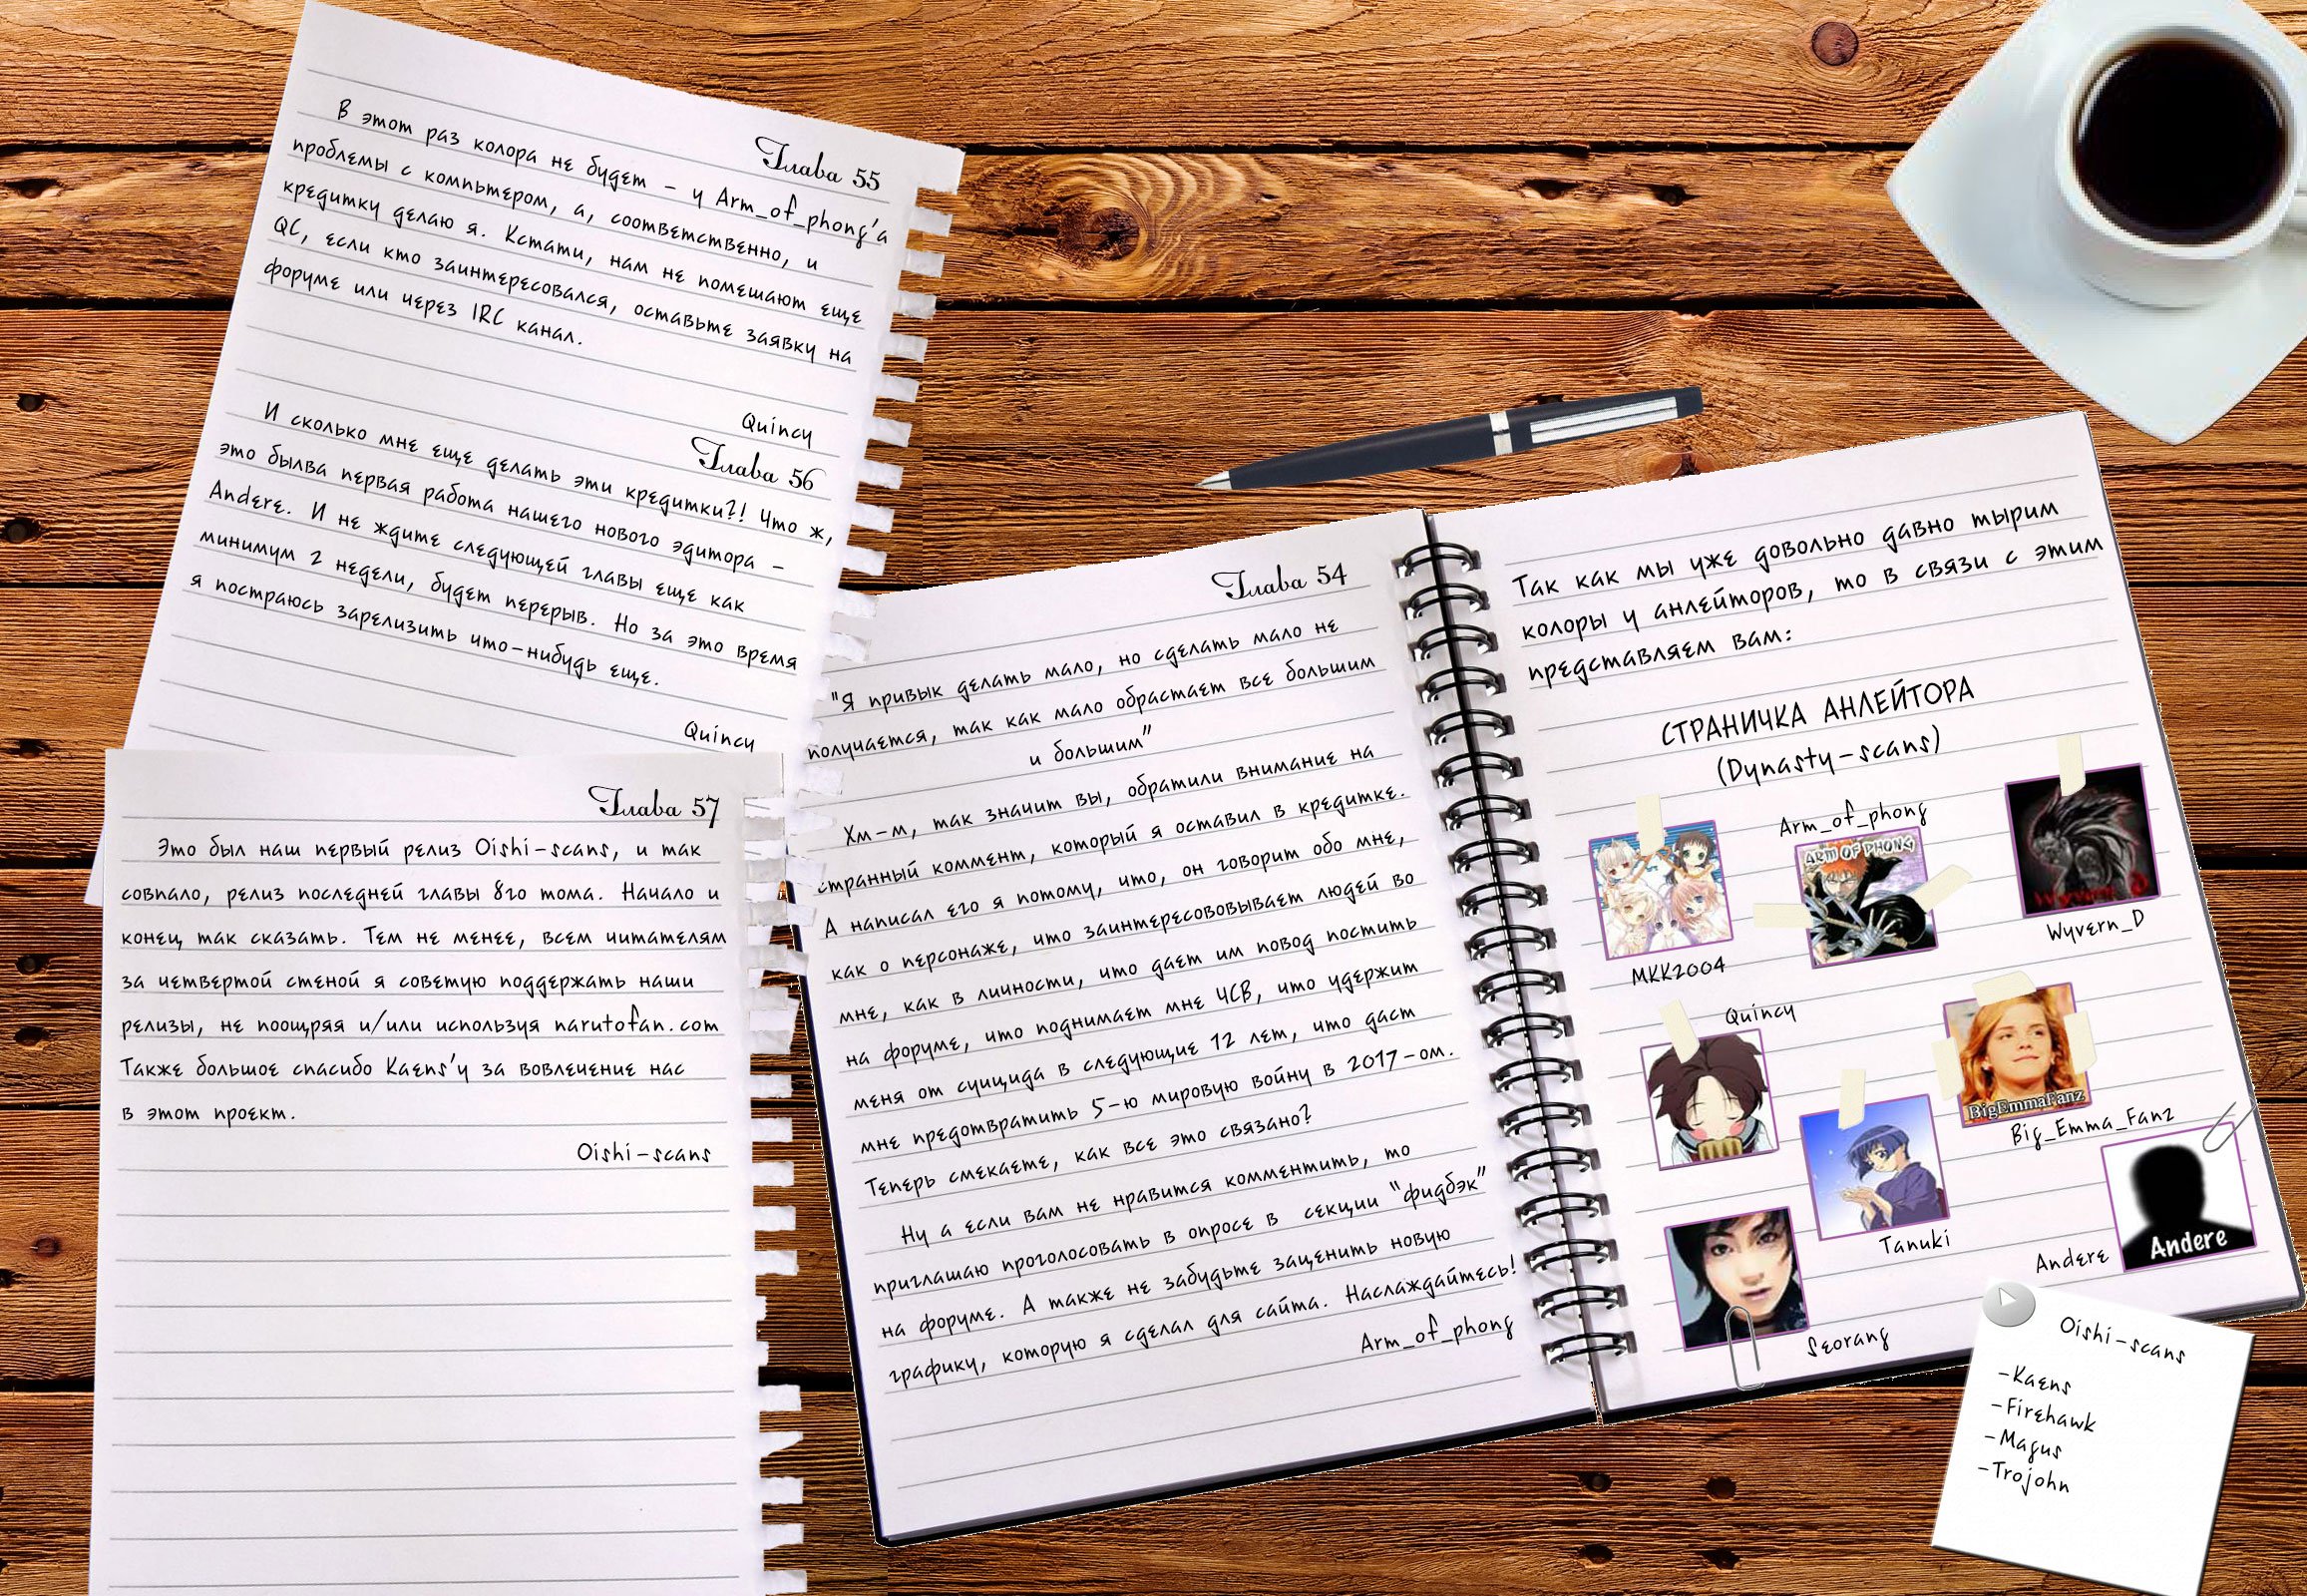 Глава 55
В этот раз колора не будет - у Arm_of_phong'а
проблемы с компьтером, а, соответственно, и
кредитку делаю я. Кстати, нам не помешают еще
QC, если кто заинтересовался, оставьте заявку на
форуме или через IRC канал.
Quincy
Глава 56
И сколько мне еще делать эти кредитки?! Что ж,
это былва первая работа нашего нового эдитора -
Andere. И не ждите следующей главы еще как
минимум 2 недели, будет перерыв. Но за это время
я постраюсь зарелизить что-нибудь еще.
Quincy
Глава 57
Это был наш первый релиз Oishi-scans, и так
совпало, релиз последней главы 8го тома. Начало и
конец так сказать. Тем не менее, всем читателям
за четвертой стеной я советую поддержать наши
релизы, не поощряя и/или используя narutofan.com
Также большое спасибо Kaens'у за вовлечение нас
в этот проект.
Oishi-scans
Глава 54
"Я привык делать мало, но сделать мало не
получается, так как мало обрастает все большим
и большим"
Хм-м, так значит вы, обратили внимание на
странный коммент, который я оставил в кредитке.
А написал его я потому, что, он говорит обо мне,
как о персонаже, что заинтересововывает людей во
мне, как в личности, что дает им повод постить
на форуме, что поднимает мне ЧСВ, что удержит
меня от суицида в следующие 12 лет, что даст
мне предотвратить 5-ю мировую войну в 2017-ом.
Теперь смекаете, как все это связано?
Ну а если вам не нравится комментить, то
приглашаю проголосовать в опросе в секции "фидбэк"
на форуме. А также не забудьте заценить новую
графику, которую я сделал для сайта. Наслаждайтесь!
Arm_of_phong
Так как мы уже довольно давно тырим
колоры у анлейторов, то в связи с этим
представляем вам:
СТРАНИЧКА АНЛЕЙТОРА
(Dynasty-scans)
MKK2004
Arm_of_phong
ARM OF PHONG
Wyvern D
Wyvern_D
Quincy
BigEmmaFanz
Big_Emma_Fanz
Tanuki
Seorang
Andere
Andere
Oishi-scans
-Kaens
-Firehawk
-Magus
-Trojohn